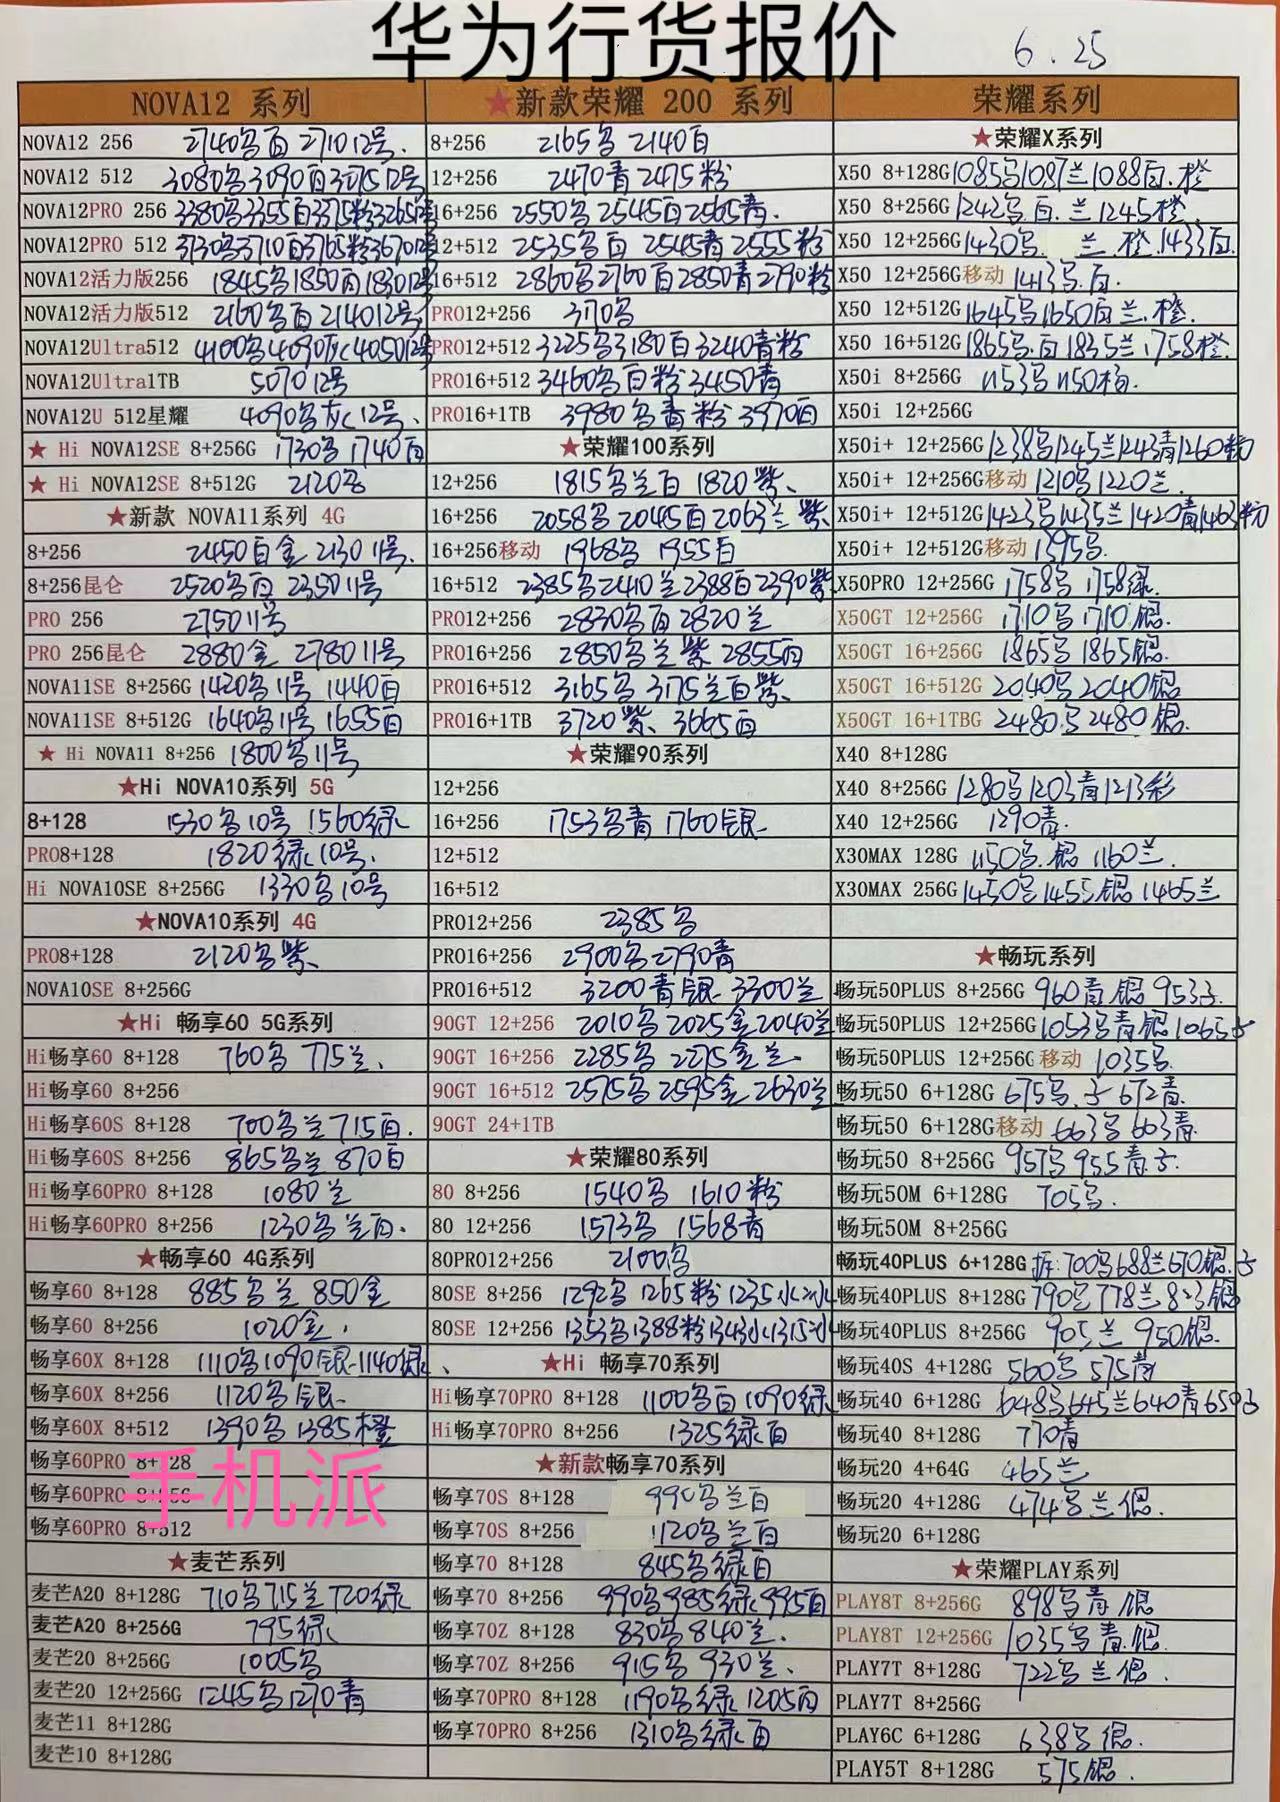 华为行货报价
6.25
NOVA12 系列
NOVA12 256 2740乌白 2710 12号.
NOVA12 512 3080乌3090白3075 12号
NOVA12PRO 256 3380乌3355白3375粉3265 12号
NOVA12PRO 512 3730乌3710白3765粉3670 12号
NOVA12活力版256 1845乌1850白1830 12号
NOVA12活力版512 2160乌白2140 12号
NOVA12Ultra512 4100乌4090灰4050 12号
NOVA12Ultra1TB 5070 12号
NOVA12U 512星耀 4090乌灰 12号、
★ Hi NOVA12SE 8+256G 1730乌 1740白
★ Hi NOVA12SE 8+512G 2120乌
★新款 NOVA11系列 4G
8+256 2450白金 2130 11号.
8+256昆仑 2520乌白 2350 11号
PRO 256 2750 11号
PRO 256昆仑 2880金 2780 11号
NOVA11SE 8+256G 1420乌11号 1440白
NOVA11SE 8+512G 1640乌11号 1655白
★ Hi NOVA11 8+256 1800乌11号
★Hi NOVA10系列 5G
8+128 1530乌10号 1560绿
PRO8+128 1820绿10号.
Hi NOVA10SE 8+256G 1330乌10号
★NOVA10系列 4G
PRO8+128 2120乌紫、
NOVA10SE 8+256G
★Hi 畅享60 5G系列
Hi畅享60 8+128 760乌 775兰、
Hi畅享60 8+256
Hi畅享60S 8+128 700乌兰715白.
Hi畅享60S 8+256 865乌兰 870白
Hi畅享60PRO 8+128 1080兰
Hi畅享60PRO 8+256 1230乌兰白.
★畅享60 4G系列
畅享60 8+128 885乌兰 850金
畅享60 8+256 1020金.
畅享60X 8+128 1110乌1090银1140绿、
畅享60X 8+256 1120乌银.
畅享60X 8+512 1390乌1385橙
畅享60PRO 8+128
畅享60PRO 8+256
畅享60PRO 8+512
手机派
★麦芒系列
麦芒A20 8+128G 710乌715兰720绿
麦芒A20 8+256G 795绿
麦芒20 8+256G 1005乌
麦芒20 12+256G 1245乌1270青
麦芒11 8+128G
麦芒10 8+128G
★新款荣耀 200 系列
8+256 2165乌 2140白
12+256 2470青 2475粉
16+256 2550乌 2545白2565青.
12+512 2535乌白 2545青2555粉
16+512 2860乌2760白2850青2790粉
PRO12+256 3170乌
PRO12+512 3225乌3180白3240青粉
PRO16+512 3460乌白粉3450青
PRO16+1TB 3980乌青粉 3970白
★荣耀100系列
12+256 1815乌兰白 1820紫、
16+256 2058乌 2045白2063兰紫
16+256移动 1968乌 1955白
16+512 2385乌2410兰2388白2390紫
PRO12+256 2830乌白2820兰
PRO16+256 2850乌兰紫 2855白
PRO16+512 3165乌 3175兰白紫、
PRO16+1TB 3720紫、3665白
★荣耀90系列
12+256
16+256 1753乌青 1760银
12+512
16+512
PRO12+256 2385乌
PRO16+256 2900乌2790青
PRO16+512 3200青银 3300兰
90GT 12+256 2010乌2025金2040兰
90GT 16+256 2285乌 2275金兰.
90GT 16+512 2575乌2595金2630兰
90GT 24+1TB
★荣耀80系列
80 8+256 1540乌 1610粉
80 12+256 1573乌 1568青
80PRO12+256 2100乌
80SE 8+256 1292乌 1265粉 1235水冰
80SE 12+256 1353乌1388粉1343水1315冰
★Hi 畅享70系列
Hi畅享70PRO 8+128 1100乌白1090绿
Hi畅享70PRO 8+256 1325绿白
★新款畅享70系列
畅享70S 8+128 990乌兰白
畅享70S 8+256 1120乌兰白
畅享70 8+128 845乌绿白
畅享70 8+256 990乌985绿995白
畅享70Z 8+128 830乌840兰.
畅享70Z 8+256 915乌930兰、
畅享70PRO 8+128 1190乌绿1205白
畅享70PRO 8+256 1310乌绿白
荣耀系列
★荣耀X系列
X50 8+128G 1085乌1087兰1088白.橙
X50 8+256G 1242乌.白.兰1245橙.
X50 12+256G 1430乌 兰.橙.1433白.
X50 12+256G移动 1413乌.白.
X50 12+512G 1645乌1650白兰.橙.
X50 16+512G 1865乌.白1835兰1758橙.
X50i 8+256G 1153乌1150粉.
X50i 12+256G
X50i+ 12+256G 1238乌1245兰1243青1260粉
X50i+ 12+256G移动 1210乌1220兰.
X50i+ 12+512G 1423乌1435兰1420青1463粉
X50i+ 12+512G移动 1395乌.
X50PRO 12+256G 1758乌 1758绿.
X50GT 12+256G 1710乌1710银.
X50GT 16+256G 1865乌 1865银.
X50GT 16+512G 2040乌2040银
X50GT 16+1TBG 2480.乌2480银.
X40 8+128G
X40 8+256G 1280乌1203青1213彩
X40 12+256G 1290青.
X30MAX 128G 1150乌.银 1160兰.
X30MAX 256G 1450乌1455银1465兰
★畅玩系列
畅玩50PLUS 8+256G 960青银 953子.
畅玩50PLUS 12+256G 1053乌青银1065子
畅玩50PLUS 12+256G移动 1035乌.
畅玩50 6+128G 675乌.子672青.
畅玩50 6+128G移动 663乌663青.
畅玩50 8+256G 957乌955青子.
畅玩50M 6+128G 705乌.
畅玩50M 8+256G
畅玩40PLUS 6+128G 拆:700乌688兰670银.子
畅玩40PLUS 8+128G 790乌778兰 银
畅玩40PLUS 8+256G 905兰 950银.
畅玩40S 4+128G 560乌575青
畅玩40 6+128G 648乌645兰640青659子
畅玩40 8+128G 770青
畅玩20 4+64G 465兰
畅玩20 4+128G 474乌兰银.
畅玩20 6+128G
★荣耀PLAY系列
PLAY8T 8+256G 898乌青银
PLAY8T 12+256G 1035乌青.银.
PLAY7T 8+128G 722乌兰银.
PLAY7T 8+256G
PLAY6C 6+128G 638乌银.
PLAY5T 8+128G 575银.